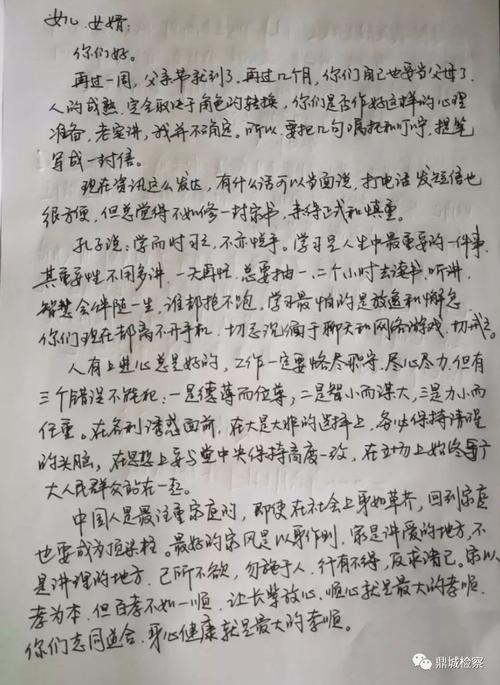 女儿、女婿:
你们好。
再过一周,父亲节就到了,再过几个月,你们自己也要当父母了。
人的成熟,完全取决于角色的转换,你们是否作好这样的心理
准备,老实讲,我并不确定。所以,要把几句嘱托和叮咛,提笔
写成一封信。
现在资讯这么发达,有什么话可以当面说,打电话发短信也
很方便,但总觉得不如修一封家书,来得正式和慎重。
孔子说:学而时习之,不亦悦乎。学习是人生中最重要的一件事,
其重要性不用多讲,一天再忙,总要抽一、二个小时去读书、听讲,
智慧会伴随一生,谁都抢不跑。学习最怕的是放逸和懈怠
你们现在都离不开手机,切忌沉湎于聊天和网络游戏,切戒之。
人有上进心总是好的,工作一定要恪尽职守、尽心尽力,但有
三个错误不能犯:一是德薄而位尊,二是智小而谋大,三是力小而
任重。在名利诱惑面前,在大是大非的选择上,务必保持清醒
的头脑,在思想上要与党中央保持高度一致,在立场上始终
大人民群众站在一起。
中国人是最注重家庭的,即使在社会上身如草芥,回到家庭
也要成为顶梁柱。最好的家风是以身作则,家是讲爱的地方,不
是讲理的地方,己所不欲,勿施于人,行有不得,反求诸己。家以
孝为本,但百孝不如一顺,让长辈放心、顺心就是最大的孝顺,
你们志同道合、身心健康就是最大的孝顺。
鼎城检察